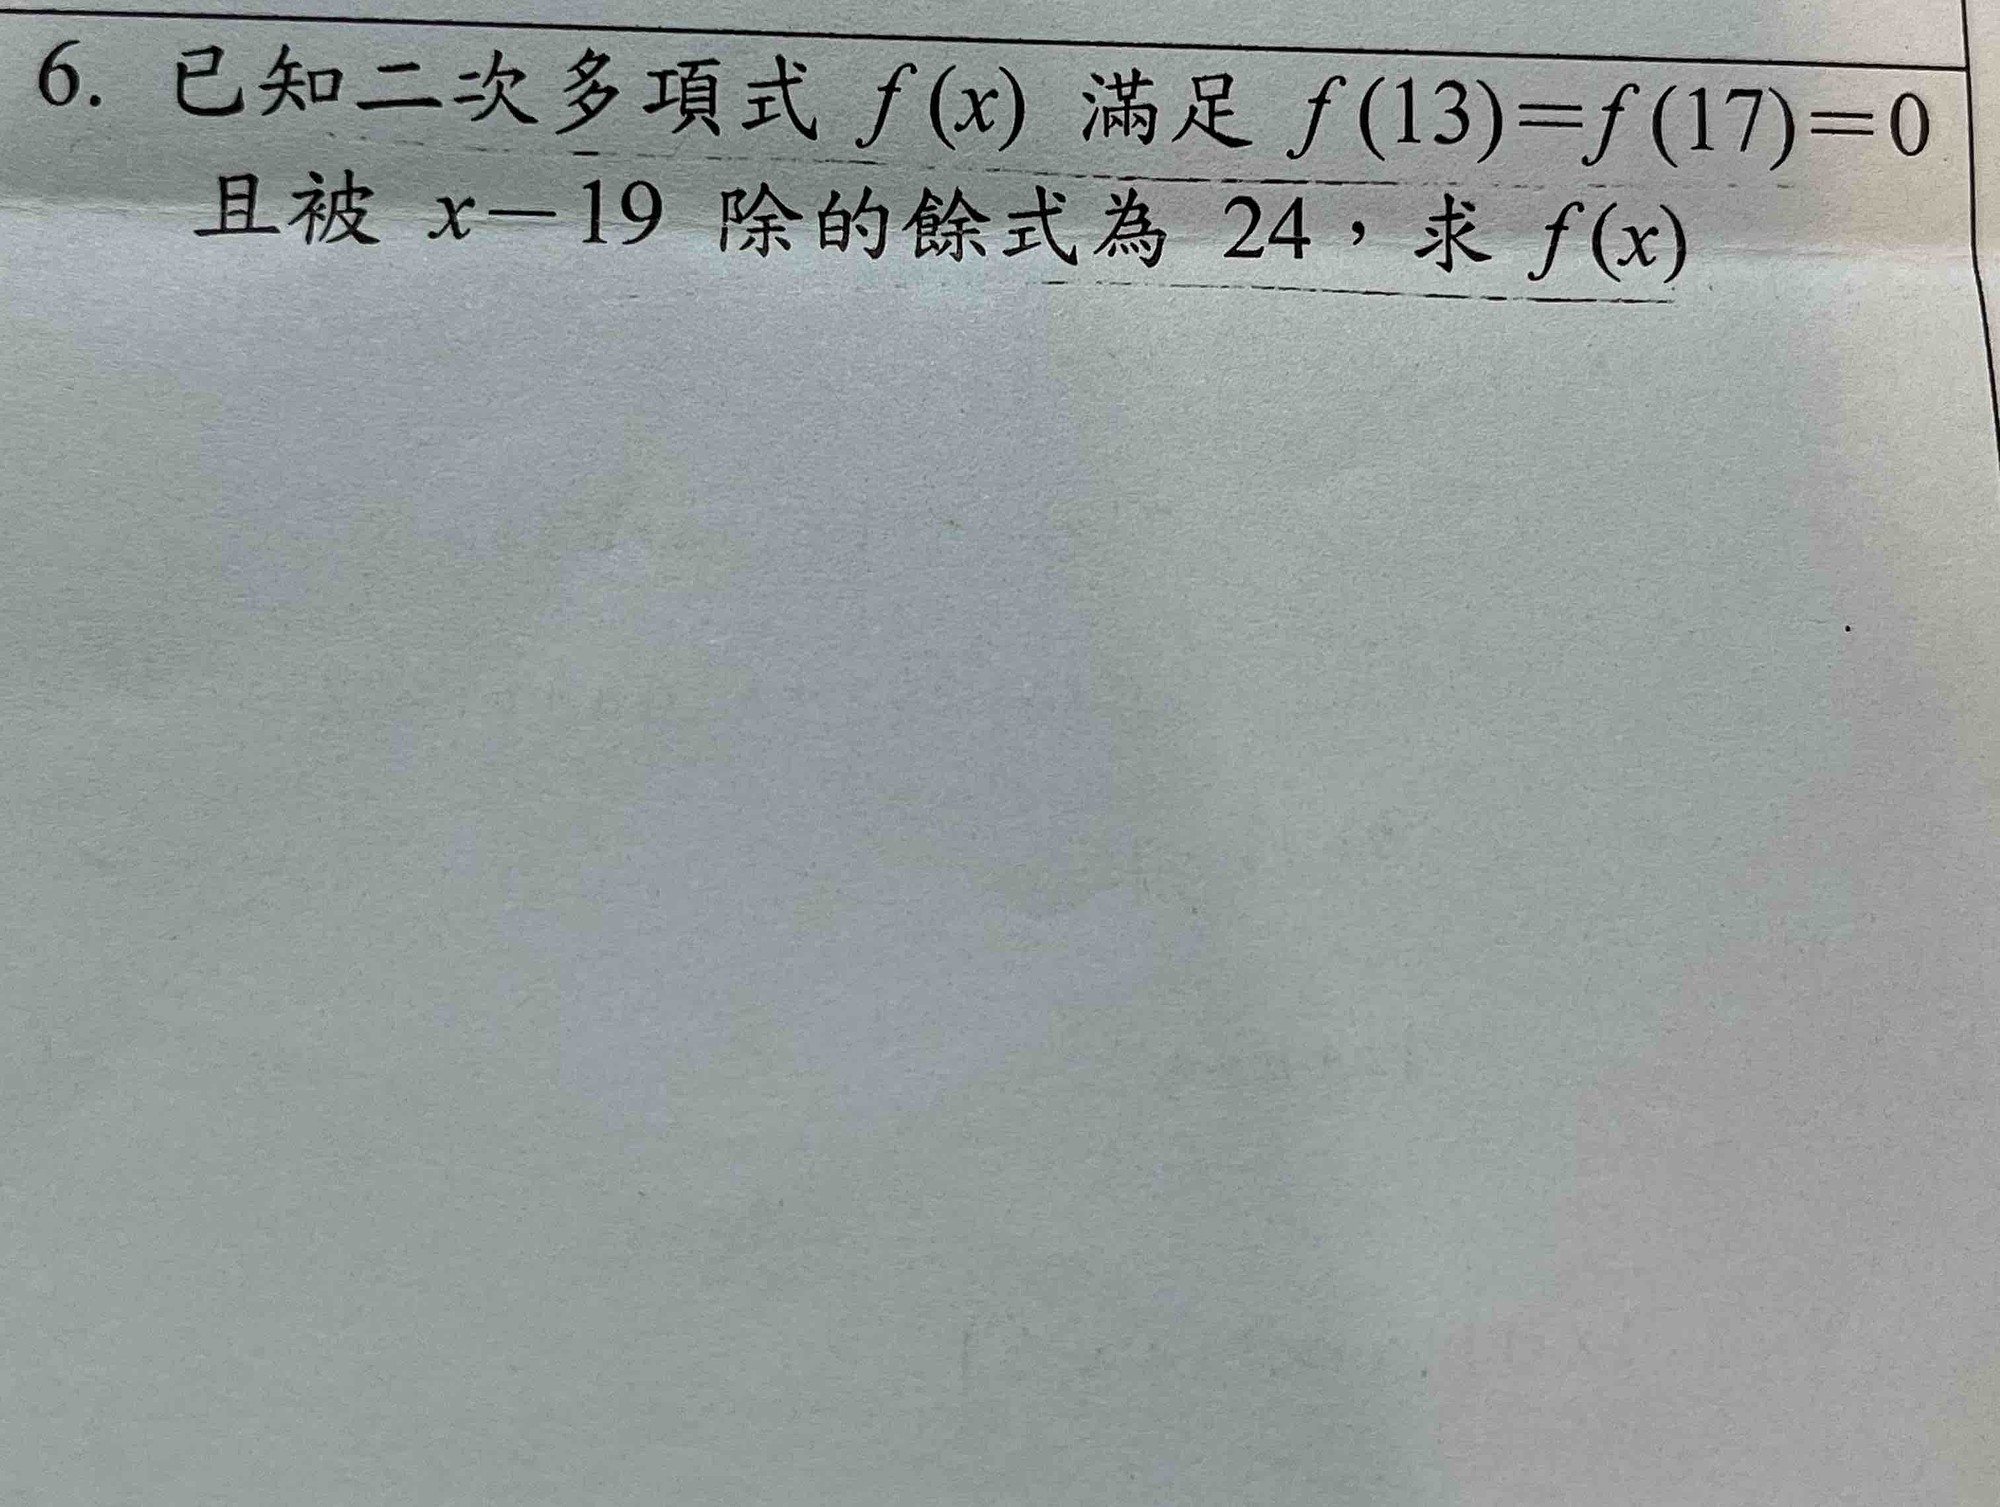 6. 已知二次多項式 f(x) 滿足 f(13)=f(17)=0
且被 x-19 除的餘式為 24,求 f(x)